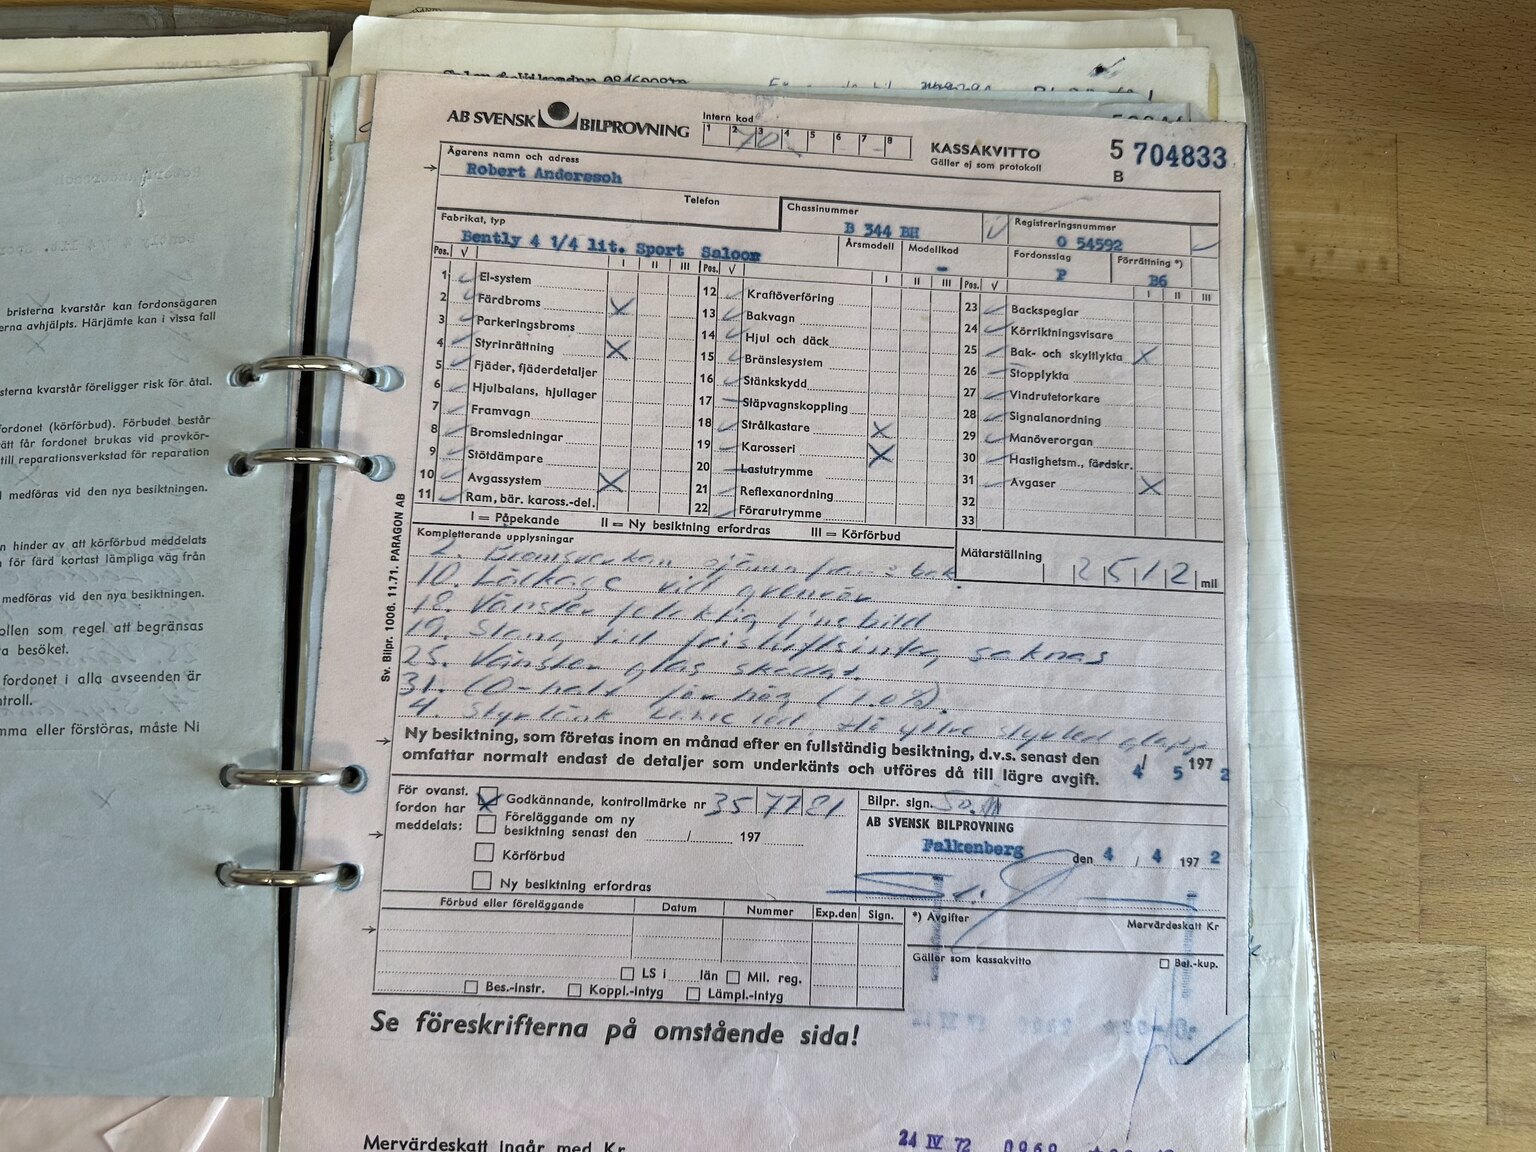 bristerna kvarstår kan fordonsägaren
erna avhjälpts. Härjämte kan i vissa fall
sterna kvarstår föreligger risk för åtal.
fordonet (körförbud). Förbudet består
ätt får fordonet brukas vid provkör-
till reparationsverkstad för reparation
medföras vid den nya besiktningen.
n hinder av att körförbud meddelats
för färd kortast lämpliga väg från
medföras vid den nya besiktningen.
ollen som regel att begränsas
a besöket.
fordonet i alla avseenden är
troll.
mma eller förstöras, måste Ni
AB SVENSK BILPROVNING
Intern kod
1 2 3 4 5 6 7 8
70
KASSAKVITTO
Gäller ej som protokoll
5 B 704833
Ägarens namn och adress
Robert Anderssoh
Telefon
Chassinummer
B 344 BH
Registreringsnummer
O 54592
Fabrikat, typ
Bently 4 1/4 lit. Sport Saloon
Årsmodell
Modellkod
-
Fordonsslag
P
Förrättning *)
B6
Pos. √ I II III
1 El-system
2 Färdbroms
3 Parkeringsbroms
4 Styrinrättning
5 Fjäder, fjäderdetaljer
6 Hjulbalans, hjullager
7 Framvagn
8 Bromsledningar
9 Stötdämpare
10 Avgassystem
11 Ram, bär. kaross.-del.
Pos. √ I II III
12 Kraftöverföring
13 Bakvagn
14 Hjul och däck
15 Bränslesystem
16 Stänkskydd
17 Släpvagnskoppling
18 Strålkastare
19 Karosseri
20 Lastutrymme
21 Reflexanordning
22 Förarutrymme
Pos. √ I II III
23 Backspeglar
24 Körriktningsvisare
25 Bak- och skyltlykta
26 Stopplykta
27 Vindrutetorkare
28 Signalanordning
29 Manöverorgan
30 Hastighetsm., färdskr.
31 Avgaser
32
33
I = Påpekande II = Ny besiktning erfordras III = Körförbud
Kompletterande upplysningar
Mätarställning
2512 mil
2. Bromsverkan ojämn fram o bak
10. Läckage vid grenrör
18. Vänster felaktig ljusbild
19. Stång till friskluftsintag saknas
25. Vänster glas skadat.
31. CO-halt för hög (10%).
4. yttre styrled
Sv. Bilpr. 1006. 11.71. PARAGON AB
Ny besiktning, som företas inom en månad efter en fullständig besiktning, d.v.s. senast den 4/5 1972
omfattar normalt endast de detaljer som underkänts och utföres då till lägre avgift.
För ovanst. fordon har meddelats:
Godkännande, kontrollmärke nr 357721
Föreläggande om ny
besiktning senast den / 197
Körförbud
Ny besiktning erfordras
Bilpr. sign.
AB SVENSK BILPROVNING
Falkenberg den 4 / 4 1972
Förbud eller föreläggande Datum Nummer Exp.den Sign.
LS i län Mil. reg.
Bes.-instr. Koppl.-intyg Lämpl.-intyg
*) Avgifter
Mervärdeskatt Kr
Gäller som kassakvitto
Bet.-kup.
Se föreskrifterna på omstående sida!
Mervärdeskatt ingår med Kr
24 IV 72 0969